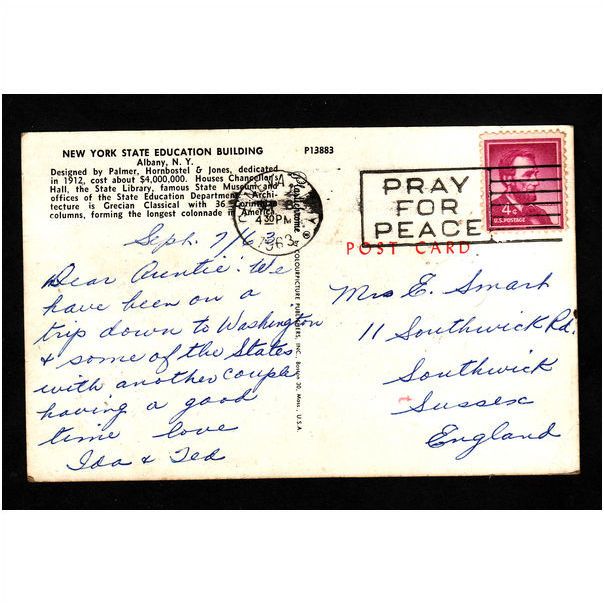 NEW YORK STATE EDUCATION BUILDING
Albany, N. Y.
Designed by Palmer, Hornbostel & Jones, dedicated
in 1912, cost about $4,000,000. Houses Chancellor's
Hall, the State Library, famous State Museum and
offices of the State Education Department. Archi-
tecture is Grecian Classical with 36 Corinthian
columns, forming the longest colonnade in America.
P13883
Plastichrome ®
BY COLOURPICTURE PUBLISHERS, INC., Boston 30, Mass., U.S.A.
430 PM
1963
PRAY
FOR
PEACE
4¢
U.S. POSTAGE
POST CARD
Sept. 7/63
Dear Auntie: We
have been on a
trip down to Washington
& some of the States
with another couple
having a good
time love
Ida & Ted
Mrs E. Smart
11 Southwick Rd.
Southwick
Sussex
England